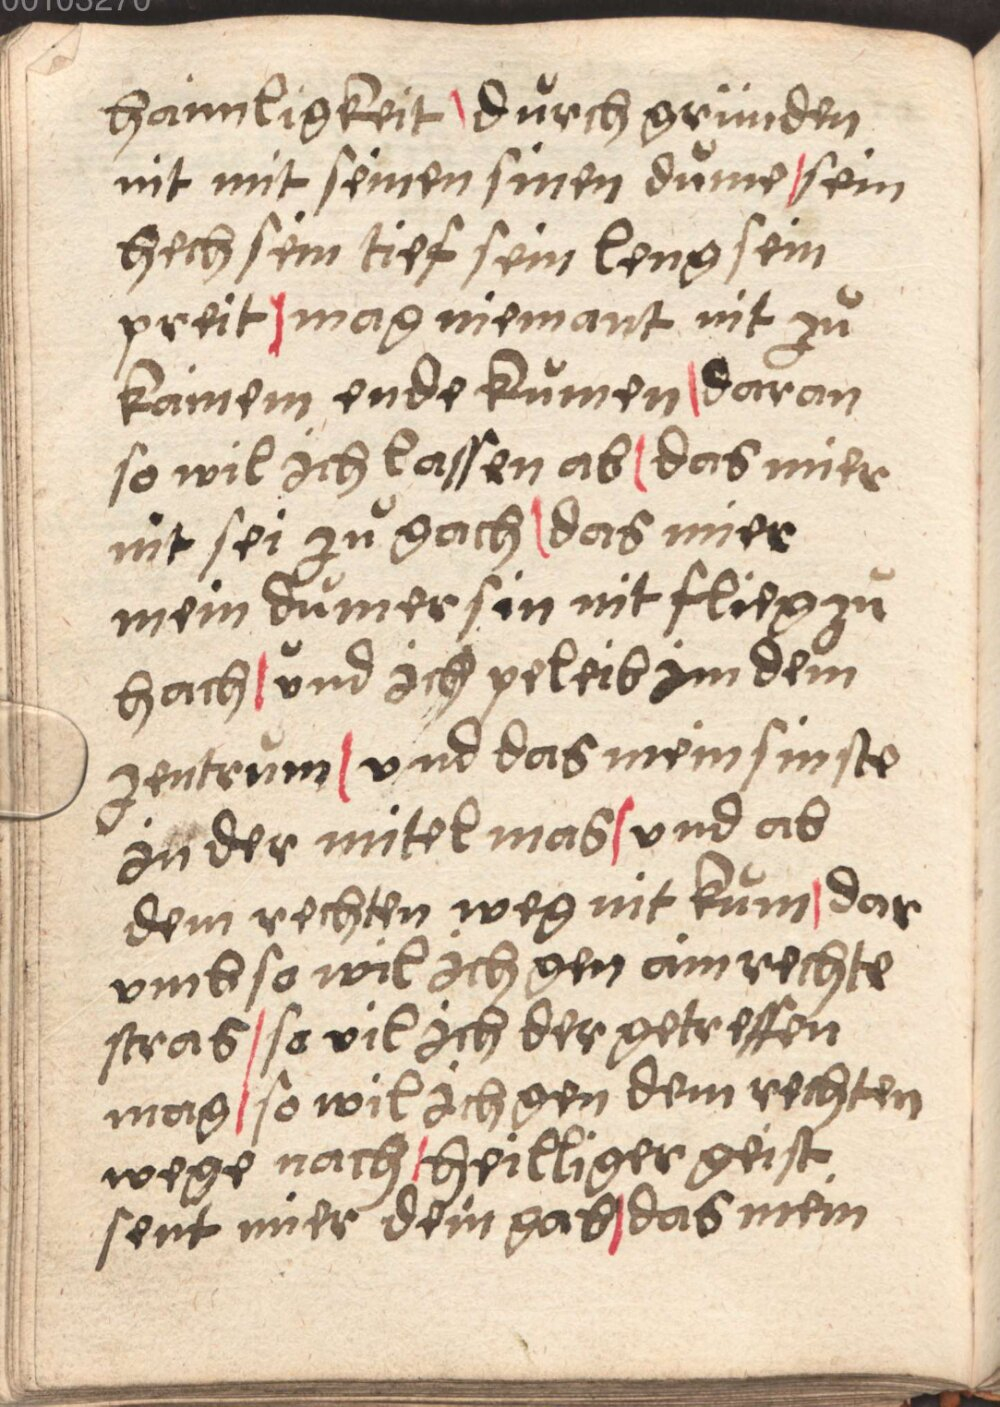 00103270
haimligkeit / dŭrch gründen
nit mit seinen sinen dŭme / sein
hech sein tief sein leng sein
preit / mag niemant nit zŭ
kainem ende kŭmen / daran
so wil ich lassen ab / das mier
nit sei zŭ gach / das mier
mein dŭmer sin nit flieg zŭ
hach / vnd ich peleib im dem
zentrŭm / vnd das mein sin ste
in der mitel mas / vnd ab
dem rechten weg nit kŭm / dar
vmb so wil ich gen ain rechte
stras / so vil ich der getreffen
mag / so wil ich gen dem rechten
wege nach / heilliger geist
sent mier dein gab / das mein